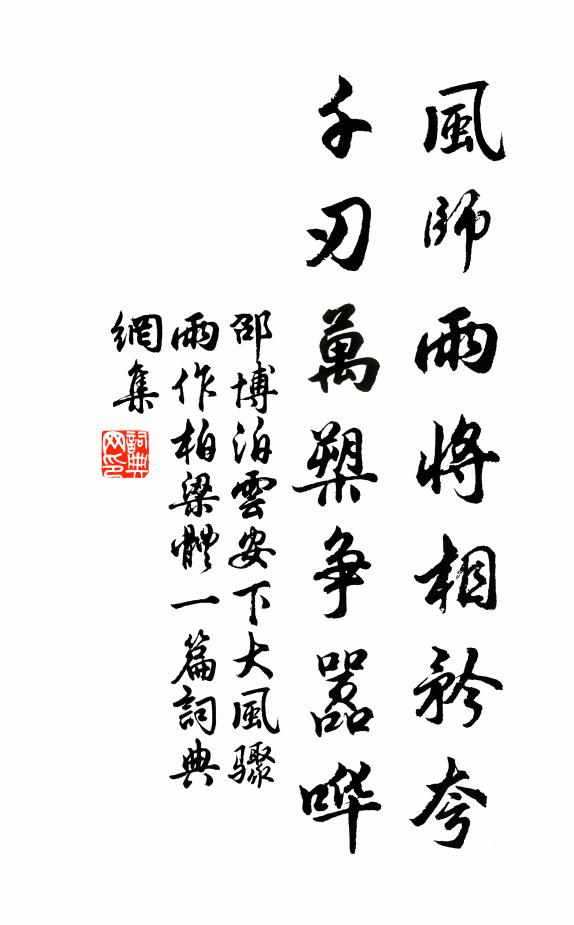 風師雨將相矜夸
千刃萬槊争嚣哗
邵博泊雲安下大風驟
雨作柏梁體一篇詞典
網集
詞典
网印